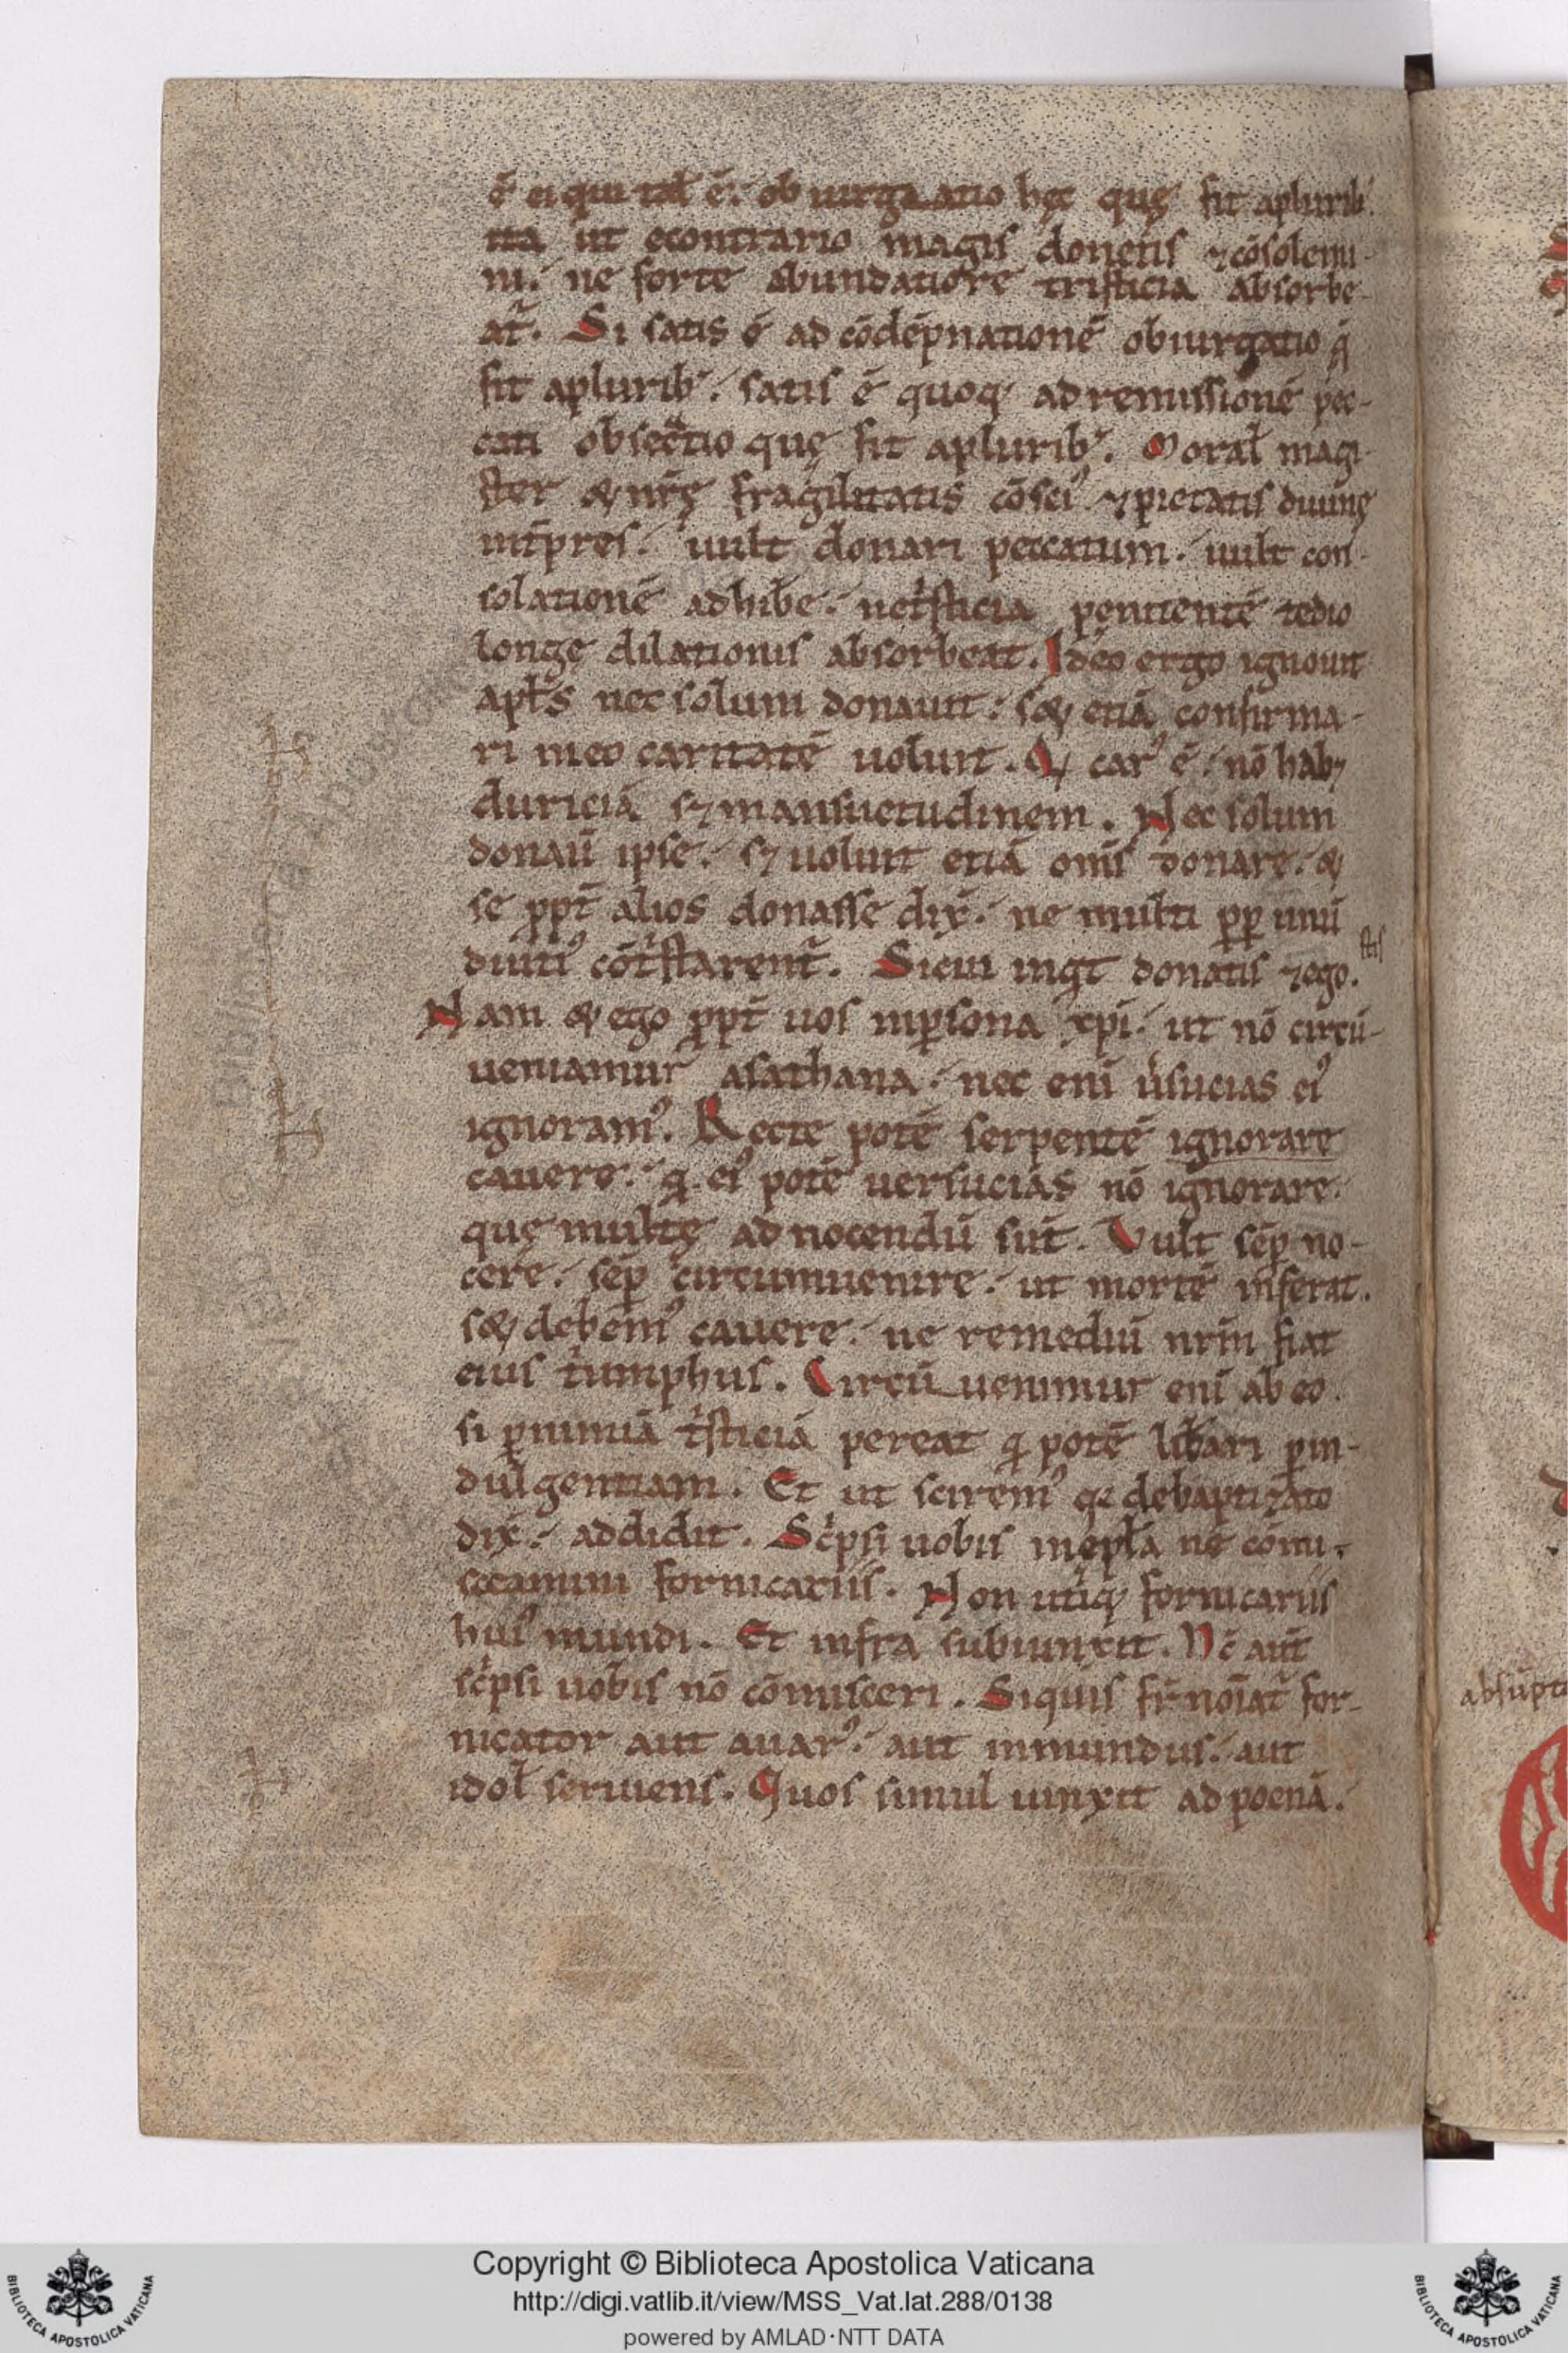 ē ei qui tał ē. obiurgatio hęc quę fit apluribꝰ.
ita ut econtrario magis donetis ⁊cōsolemi-
ni. ne forte abundatiore tristicia absorbe-
at᷑. Si satis ē ad cōdēpnationē obiurgatio q̄
fit apluribꝰ. satis ē quoq; ad remissionē pec-
cati obsecᵃtio quę fit apluribꝰ. Morał magi-
ster & nr̄ę fragilitatis cōsciꝰ ⁊pietatis diuinę
int̄pres. uult donari peccatum. uult con-
solationē adhibe. netⁱsticia penitentē tedio
longę dilationis absorbeat. Ideo ergo ignouit
apłs nec solum donauit. s& etiā confirma-
ri meo caritatē uoluit. Q' carꝰ ē. nō hab⁊
duriciā s⁊ mansuetudinem. Nec solum
donaū ipse. s⁊ uoluit etiā om̄s donare. &
se ꝓpt̄ alios donasse dix̄. ne multi ꝓp unū
diutiꝰ cōtⁱstarent᷑. Sicui inqⁱt donatis ⁊ego.
stis
Nam & ego ꝓpt̄ uos inꝑsona xp̄i. ut nō circū-
ueniamur asathana. nec enī ūsucias eiꝰ
ignoramꝰ. Recte potē serpentē ignorare
cauere. qⁱ eiꝰ potē uersucias nō ignorare.
quę multę ad nocendū sūt. Vult sēp no-
cere. sēp circumuenire. ut mortē inferat.
s& debemꝰ cauere. ne remediū nr̄m fiat
eius tⁱumphus. Circū uenimur enī ab eo.
si ꝑnimiā tⁱsticiā pereat qⁱ potē libari ꝑin-
dulgentiam. Et ut sciremꝰ qꝛ debaptizato
dix̄. addidit. Scⁱpsi uobis inępła ne cōmi-
sceamini fornicariis. Non utiq; fornicariis
huiꝰ mundi. Et infra subiunxit. Nc̄ aūt
scⁱpsi uobis nō cōmisceri. Siquis fr̄ noīat᷑ for-
nicator aut auarꝰ. aut inmundus. aut
idoł seruiens. Quos simul uinxit ad poenā.
absūpt
Copyright © Biblioteca Apostolica Vaticana
http://digi.vatlib.it/view/MSS_Vat.lat.288/0138
powered by AMLAD·NTT DATA
BIBLIOTECA APOSTOLICA VATICANA
BIBLIOTECA APOSTOLICA VATICANA